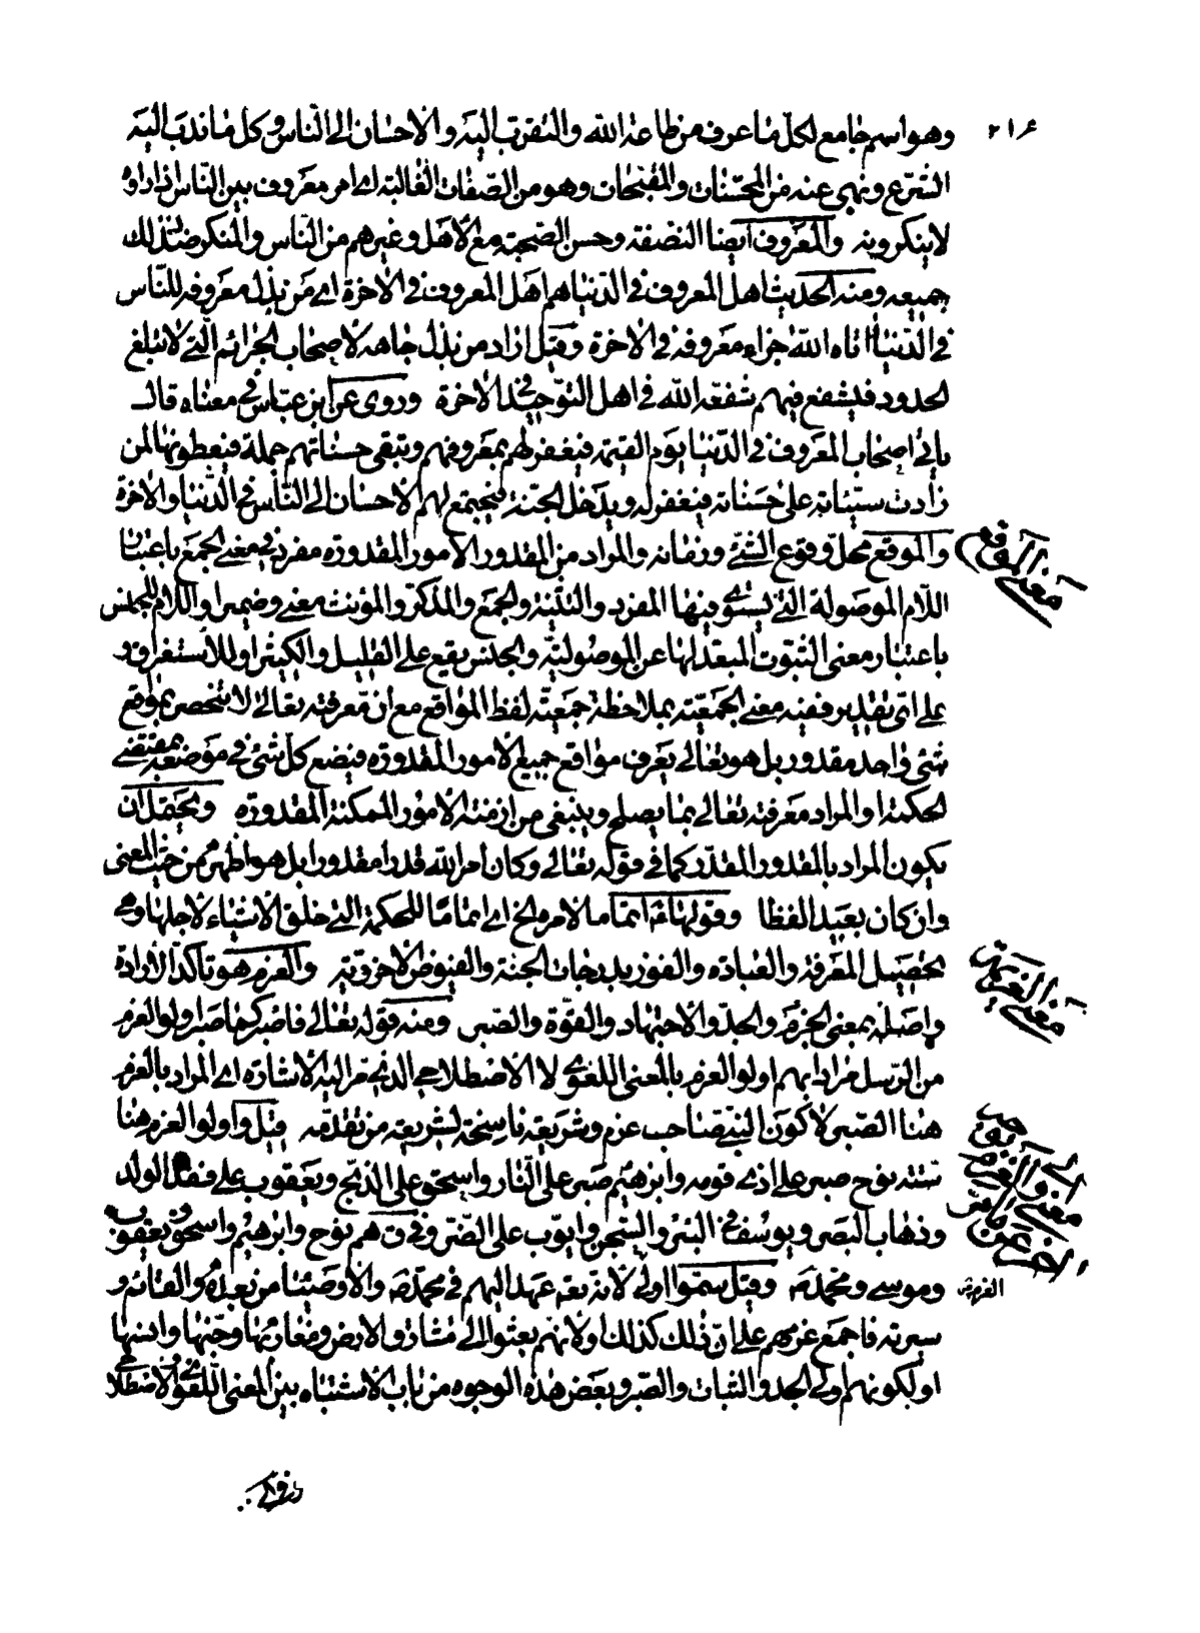 وهو اسم جامع لكل ما عرف من طاعة الله والتقرب اليه والاحسان الى الناس وكل ما ندب اليه
الشرع ونهى عنه من المحسنات والمقبحات وهو من الصفات الغالبة اى امر معروف بين الناس اذا راوه
لا ينكرونه والمعروف ايضا النصفة وحسن الصحبة مع الاهل وغيرهم من الناس والمنكر ضد ذلك
جميعه ومنه الحديث اهل المعروف فى الدنيا هم اهل المعروف فى الاخرة اى من بذل معروفه للناس
فى الدنيا اتاه الله جزاء معروفه فى الاخرة وقيل اراد من بذل جاهه لاصحاب الجرائم التى لا تبلغ
الحدود فليشفع فيهم شفعه الله فى اهل التوحيد فى الاخرة وروى عن ابن عباس فى معناه قال
ياتى اصحاب المعروف فى الدنيا يوم القيمة فيغفر لهم بمعروفهم وتبقى حسناتهم جملة فيعطونها لمن
زادت سيئاته على حسناته فيغفر له ويدخل الجنة فيجتمع لهم الاحسان الى الناس فى الدنيا والاخرة
والموقع محل وقوع الشئ وزمانه والمراد من المقدور الامور المقدورة مفرد فى معنى الجمع باعتبار
اللام الموصولة التى يستوى فيها المفرد والتثنية والجمع والمذكر والمؤنث معنى وضميرا واللام للجنس
باعتبار معنى الثبوت المبعد لها عن الموصولية والجنس يقع على القليل والكثير او للاستغراق و
على اى تقدير ففيه معنى الجمعية بملاحظة جمعية لفظ المواقع مع ان معرفته تعالى لا تنحصر بموقع
شئ واحد مقدور بل هو تعالى يعرف مواقع جميع الامور المقدورة فيضع كل شئ فى موضعه بمقتضى
الحكمة او المراد معرفته تعالى بما يصلح وينبغى من ازمنة الامور الممكنة المقدورة ويحتمل ان
يكون المراد بالمقدور المقدر كما فى قوله تعالى وكان امر الله قدرا مقدورا بل هو اظهر من حيث المعنى
وان كان بعيدا لفظا وقولها ع اتماما لامره الخ اى اتماما للحكمة التى خلق الاشياء لاجلها وهى
تحصيل المعرفة والعبادة والفوز بدرجات الجنة والفيوض الاخروية والعزم هو تاكد الارادة
واصله بمعنى الجزم والجد والاجتهاد والقوة والصبر ومنه قوله تعالى فاصبر كما صبر اولو العزم
من الرسل مرادا بهم اولو العزم بالمعنى اللغوى لا الاصطلاحى الذى مر اليه الاشارة اى المراد بالعزم
هنا الصبر لا كون النبى صاحب عزم وشريعة ناسخة لشريعة من تقدمه قيل واولو العزم هنا
ستة نوح صبر على اذى قومه وابرهيم صبر على النار واسحق على الذبح ويعقوب على فقد الولد
وذهاب البصر ويوسف فى البئر والسجن وايوب على الضر وفى ق هم نوح وابرهيم واسحق ويعقوب
وموسى ومحمد ص وقيل سموا اولى لانه تع عهد اليهم فى محمد ص والاوصياء من بعده والقائم و
سيرته فاجمع عزمهم على ان ذلك كذلك او لانهم بعثوا الى مشارق الارض ومغاربها وجنها وانسها
او لكونهم اولى الجد والثبات والصبر وبعض هذه الوجوه من باب الاشتباه بين المعنى اللغوى والاصطلاحى
٢١٤
معنى الموقع
معنى العزيمة